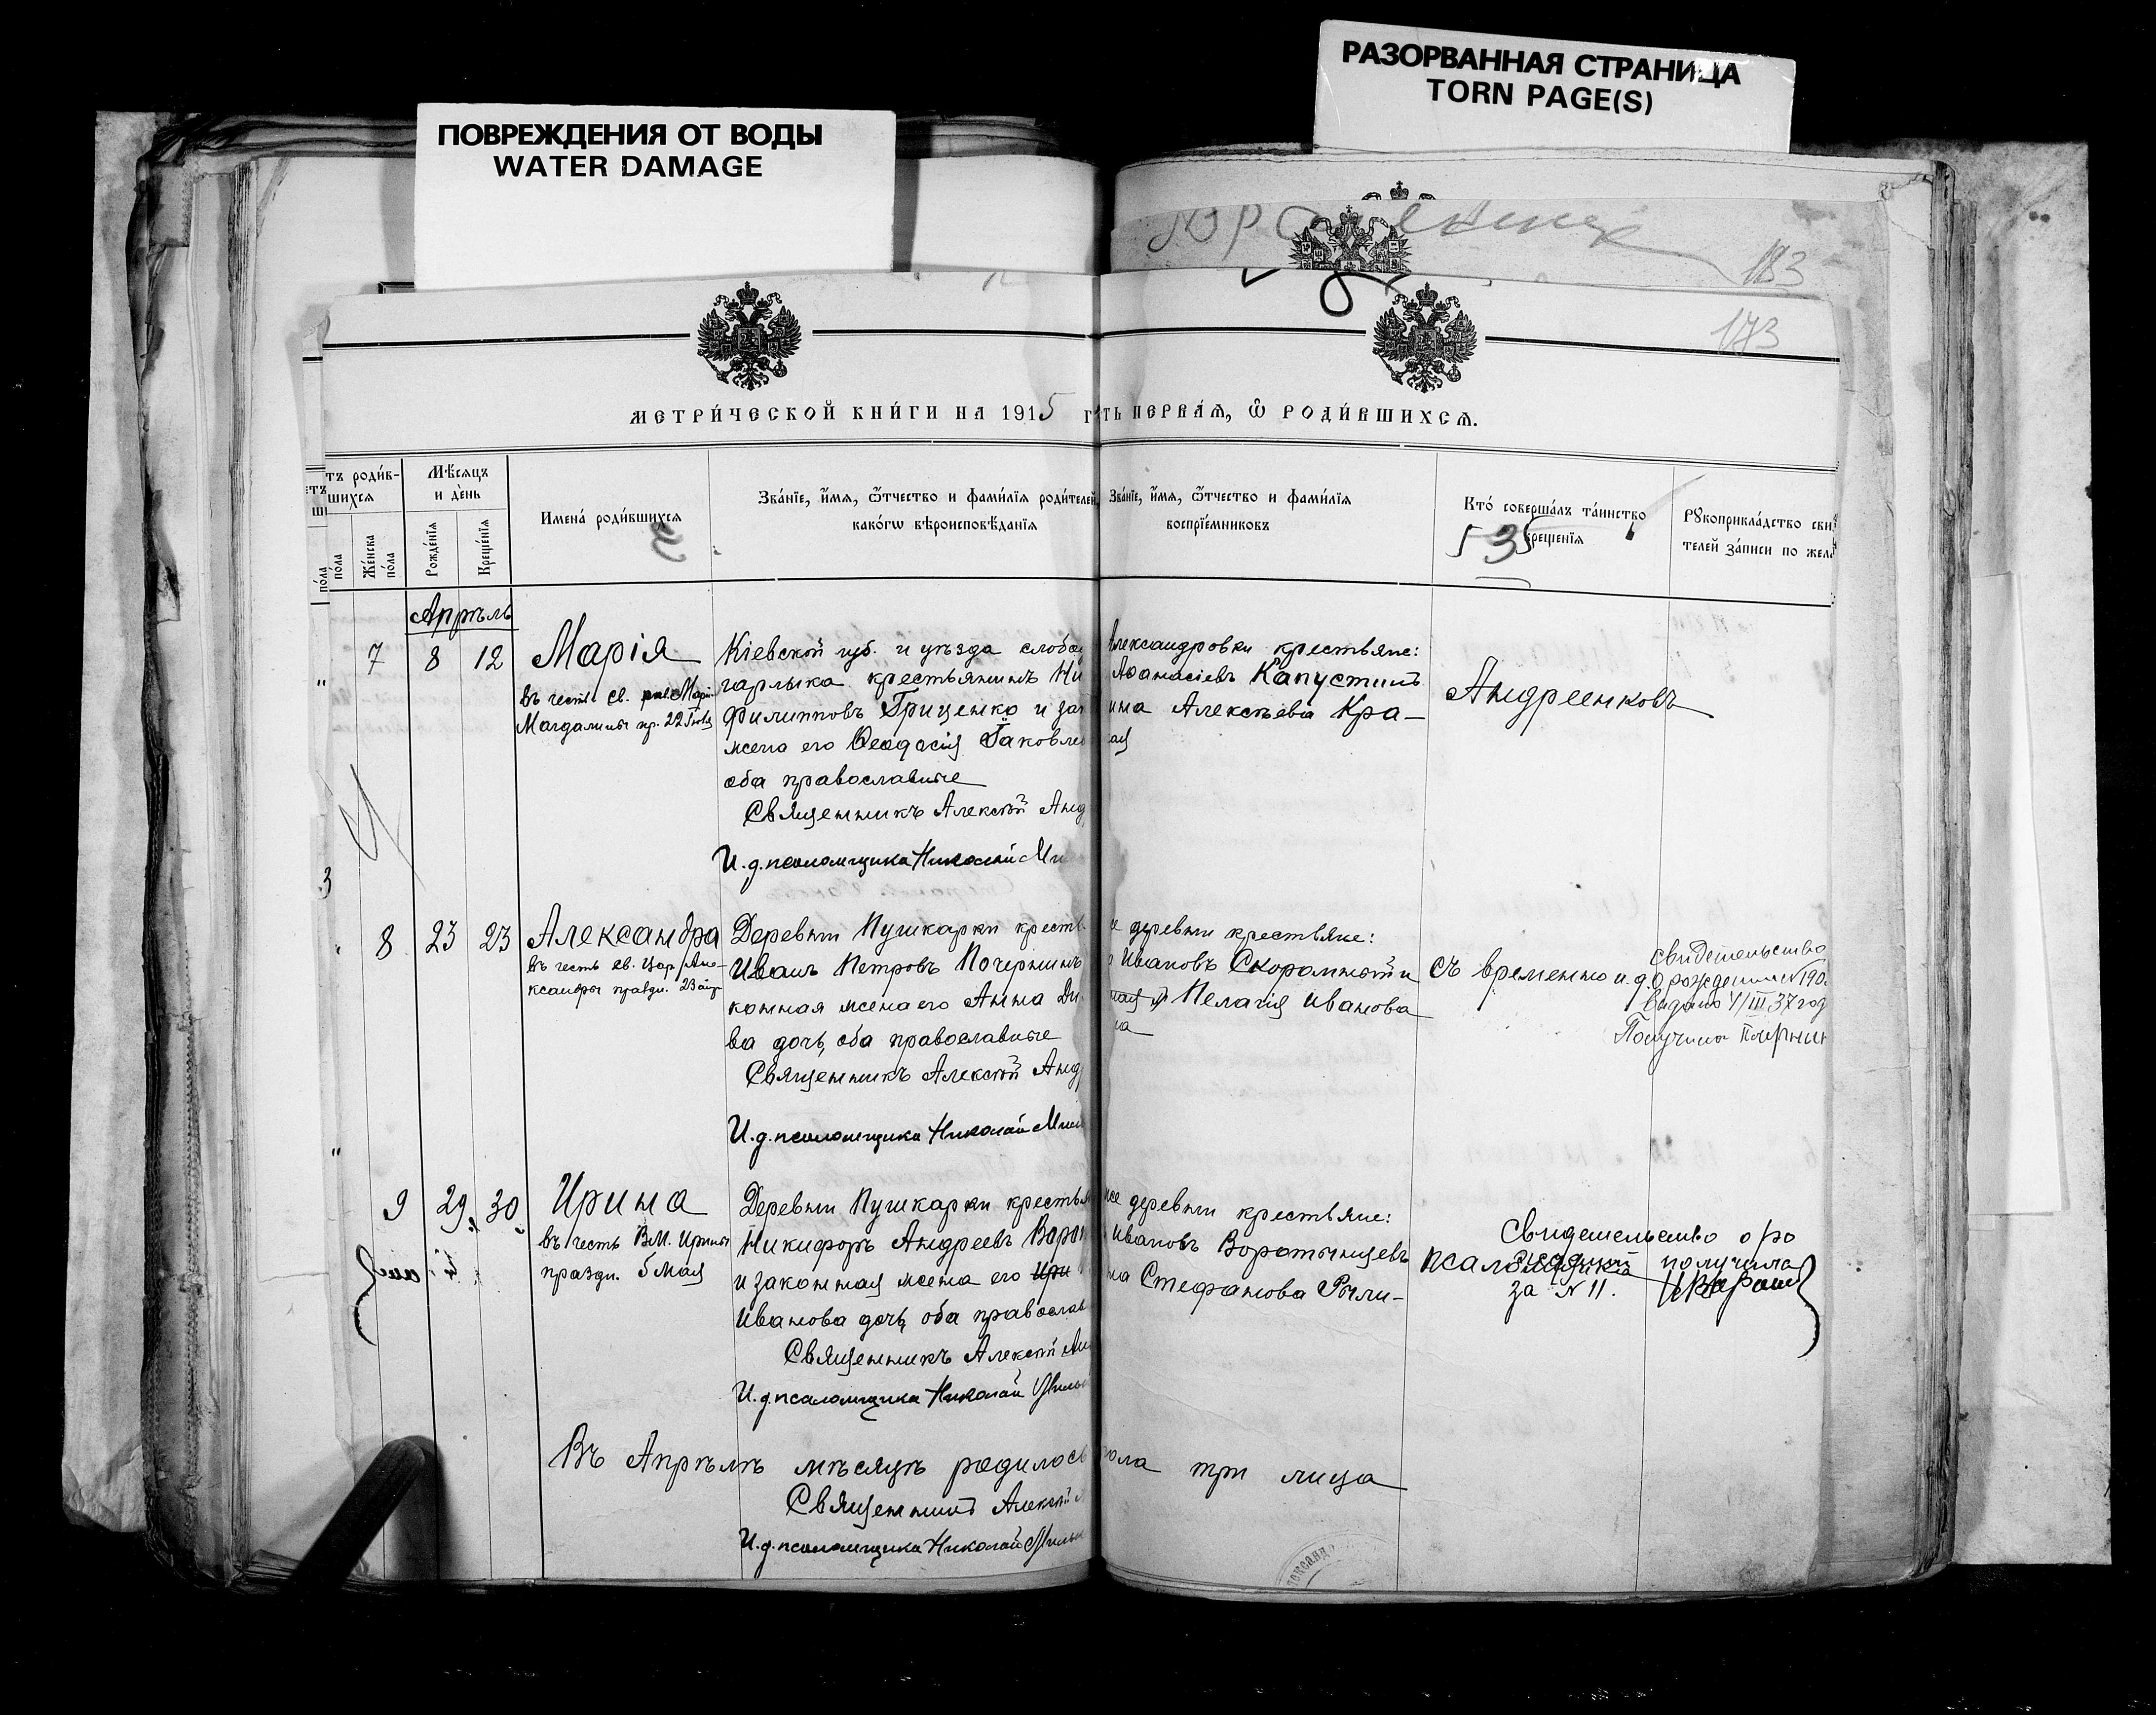 ПОВРЕЖДЕНИЯ ОТ ВОДЫ
WATER DAMAGE
РАЗОРВАННАЯ СТРАНИЦА
TORN PAGE(S)
183
173
МЕТРИ́ЧЕСКОЙ КНИ́ГИ НА 1915 Г
ТЬ ПЕРВА́Ѧ, Ѽ РОДИ́ВШИХСѦ.
тъ роди́в-
шихсѧ
Же́нска по́ла
Мѣ́сѧцъ и де́нь
Рожде́нїѧ
Креще́нїѧ
Имена́ роди́вшихсѧ
Зва́нїе, и́мѧ, ѻ́тчество и фами́лїѧ роди́телей,
како́гѡ вѣроисповѣ́данїѧ
Зва́нїе, и́мѧ, ѻ́тчество и фами́лїѧ
воспрїе́мниковъ
Кто́ соверша́лъ та́инство
креще́нїѧ
Рꙋкоприкла́дство сви
телей за́писи по жела
53
Апрѣль
7 8 12
Марія
въ честь св. Маріи
Магдалины пр. 22 Іюля
Кіевской губ. и уѣзда слобо
гарлыка крестьянинъ Ни
Филипповъ Гриценко и за
жена его Ѳеодосія Іаковле
оба православные
Священникъ Алексѣй Анд
И. д. псаломщика Николай Ми
Александровки крестьяне:
Аѳанасіевъ Капустинъ
ина Алексѣева Кра-
ая
Андреенковъ
3
8 23 23
Александра
въ честь св. цар. Але-
ксандры праздн. 23 апр
Деревни Пушкарки крест
Иванъ Петровъ Почернинъ
конная жена его Анна Ди
ва дочь, оба православные
Священникъ Алексѣй Анд
И. д. псаломщика Николай Миль
е деревни крестьяне:
Ивановъ Скоромной и
ная Пелагія Иванова
на
съ временно и. д.
свидетельство
о рождении N 190
выдано 4/III 37 год
Получила
9 29 30
Ирина
въ честь В.М. Ирины
праздн. 5 мая
Деревни Пушкарки крестья
Никифоръ Андреевъ Ворот
и законная жена его Ири
Иванова дочь, оба православ
Священникъ Алексѣй Ан
И. д. псаломщика Николай Миль
же деревни крестьяне:
Ивановъ Воротынцевъ
на Стефанова Рыли-
псаломщика
Свидетельство о ро
получила
за N 11.
Въ Апрѣлѣ мѣсяцѣ родилось
пола три лица
Священникъ Алексѣй
И. д. псаломщика Николай Мильн